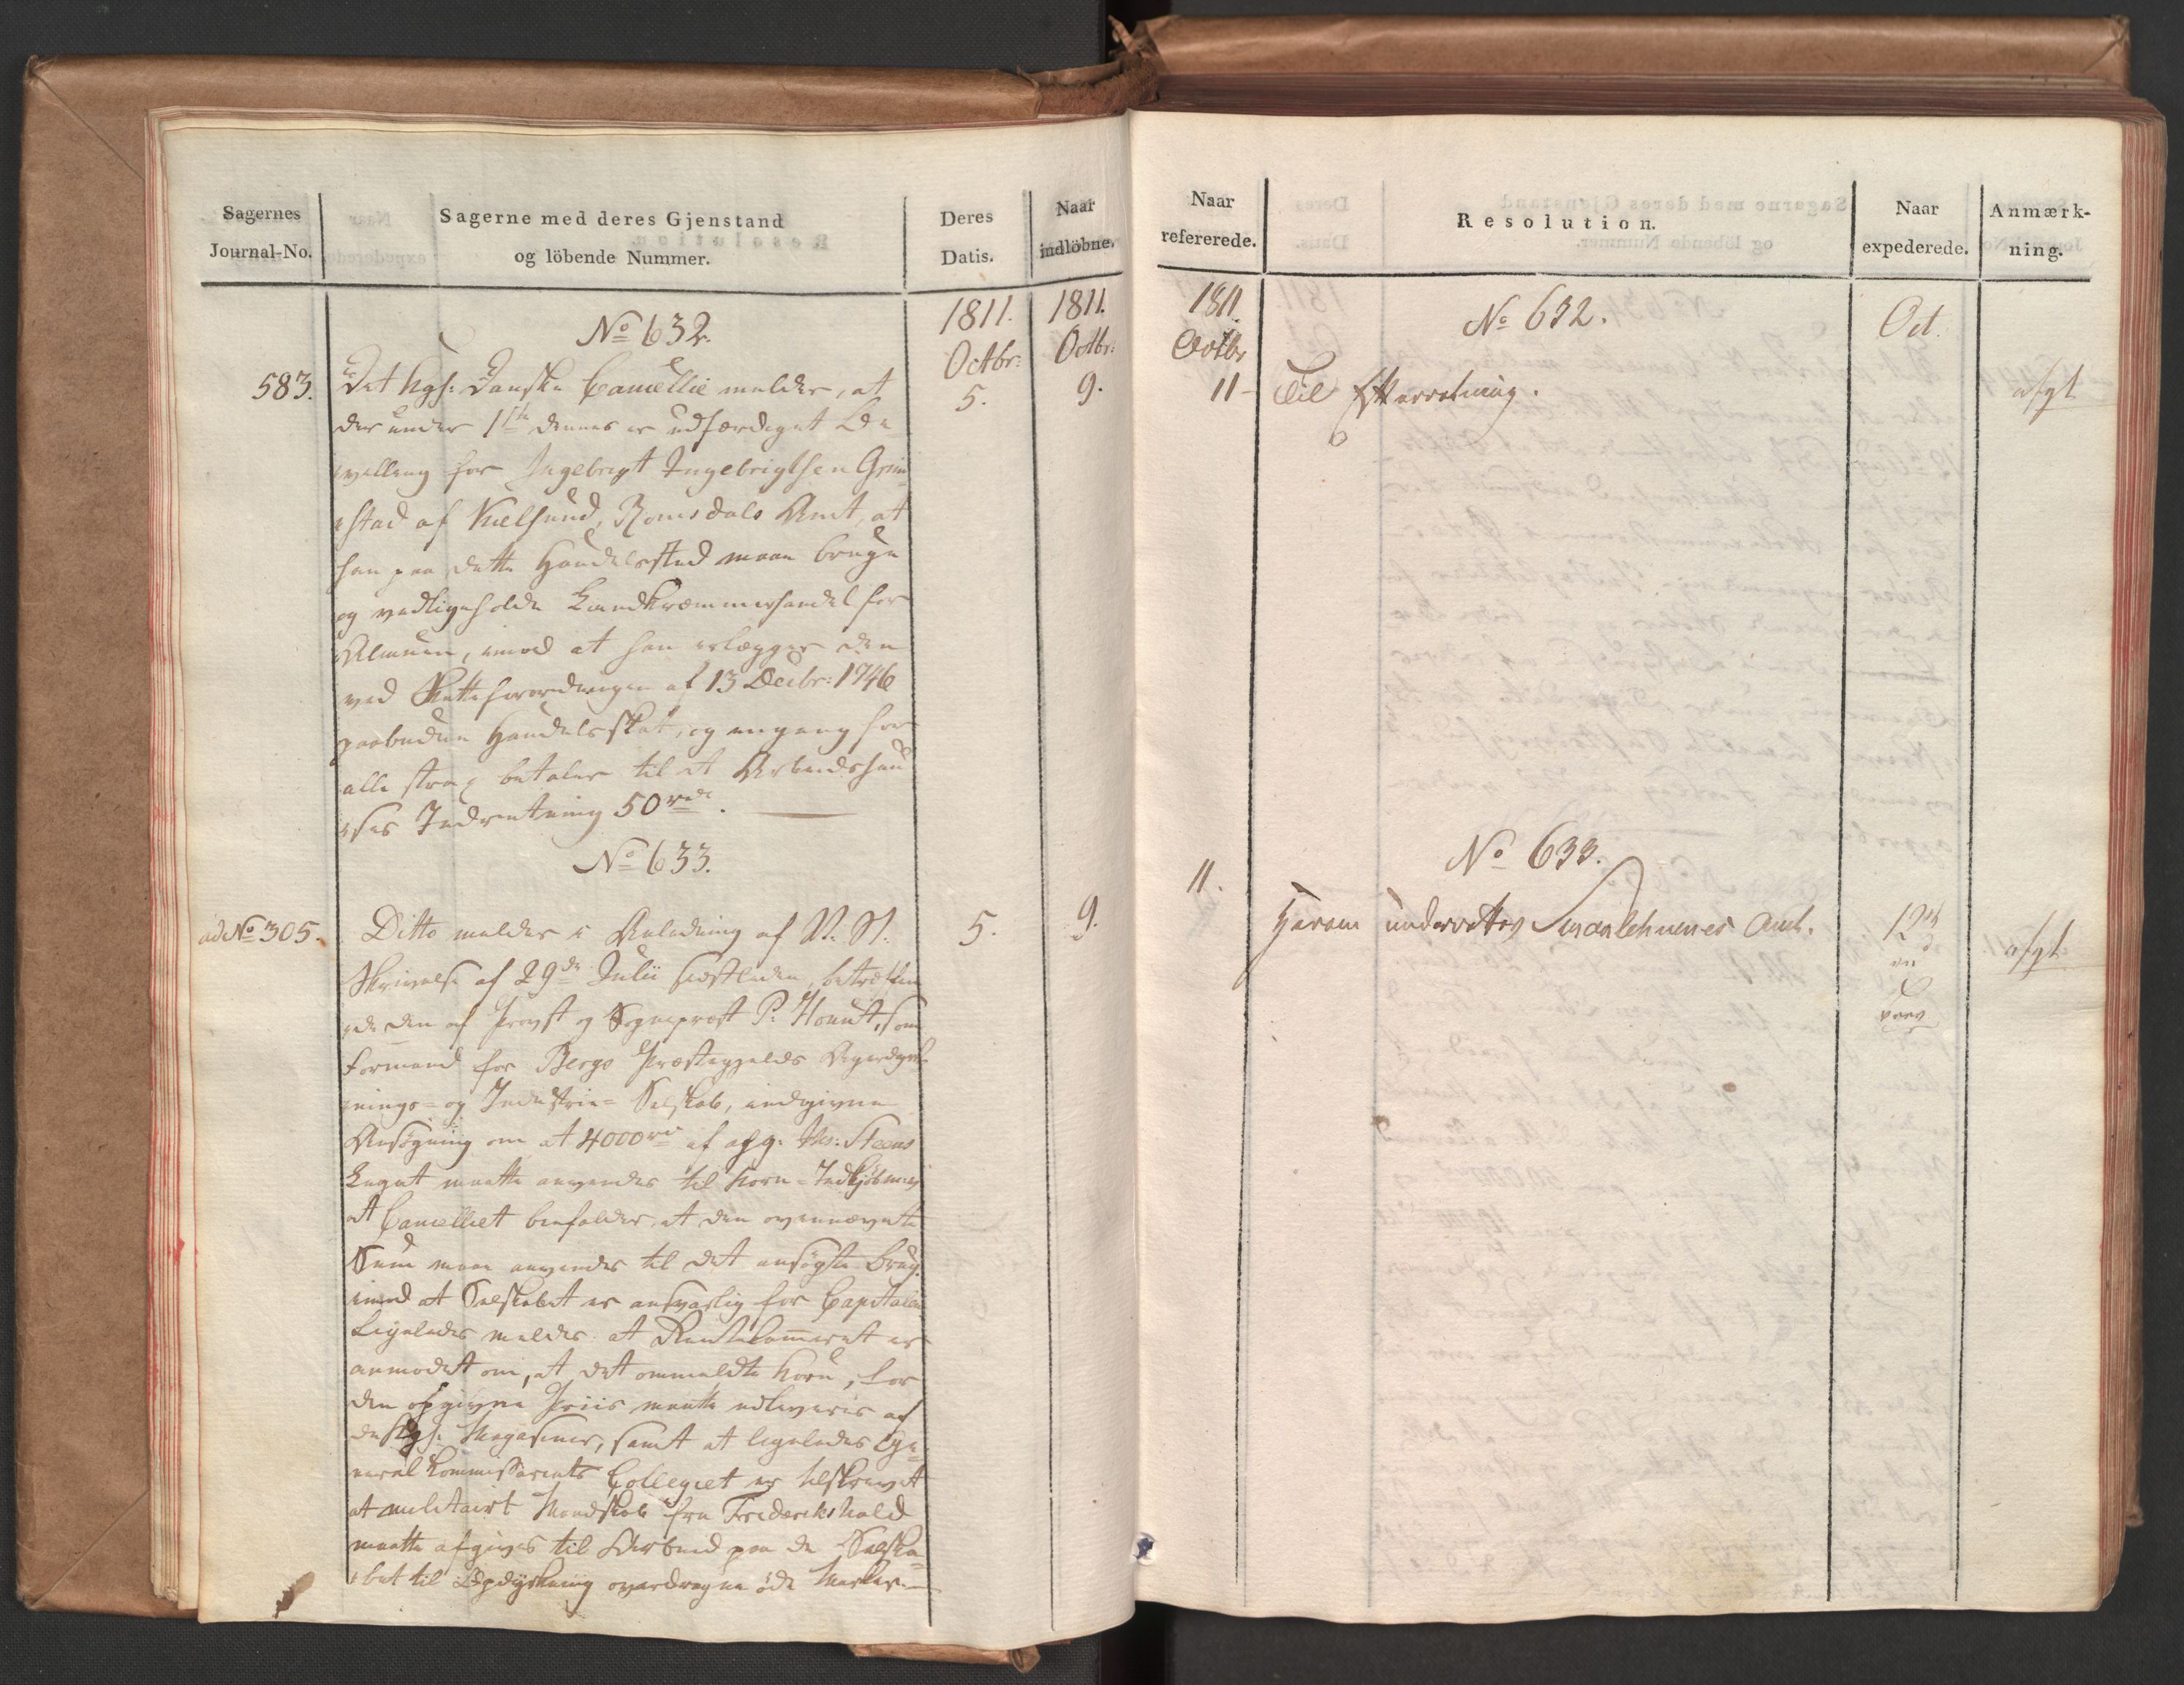 Sagernes
Journal-No.
Sagerne med deres Gjenstand
og löbende Nummer.
Deres
Datis.
Naar
indlöbne.
1811.
Octbr:
1811.
Octbr:
No 632.
583.
5.
9.
Det kgl: Danske Cancellie melder, at
der under 1ste dennes er udfærdiget Be-
villing for Ingebrigt Ingebrigtsen Grim-
stad af Qvelsund, Romsdals Amt, at
han paa dette Handelssted maae bruge
og vedligeholde Landkræmmerhandel for
Almuen, imod at han erlægger den
ved Skatteforordningen af 13 Decbr: 1746
paabudne Handelsskat, og engang for
alle strax betaler til et Arbeidshuu-
ses Indretning 50 rd.
No 633.
ad No 305.
5.
9.
Ditto melder i Anledning af R: K:
Skrivelse af 29de Julii sidstleden, betræffen-
de den af Provst og Sognepræst P: Hount, som
Formand for Bergs Præstegjelds Agerdyrk-
nings- og Industrie-Selskab, indgivne
Ansøgning om at 4000 rd af afg. Ths: Steens
Legat maatte anvendes til Korn-Indkjöbning
at Cancelliet befalder, at den ovennævnte
Sum maae anvendes til det ansøgte Brug,
imod at Selskabet er ansvarlig for Capitalen
Ligeledes meldes at Rentekammeret er
anmodet om, at det ommeldte Korn, for
den opgivne Priis maatte udleveres af
de kgl: Magasiner, samt at ligeledes Ge-
neral Kommissariats Collegiet er tilskrevet
at militairt Mandskab fra Frederikshald
maatte afgives til Arbeid paa de Selska-
bet til Opdyrkning overdragne öde Marker.
Naar
refererede.
Resolution.
Naar
expederede.
Anmærk-
ning.
1811.
Octbr
No 632.
Oct.
11
Til Efterretning.
afgt
No 633.
11.
Herom underrettes Smaalehnenes Amt.
12te
afgt